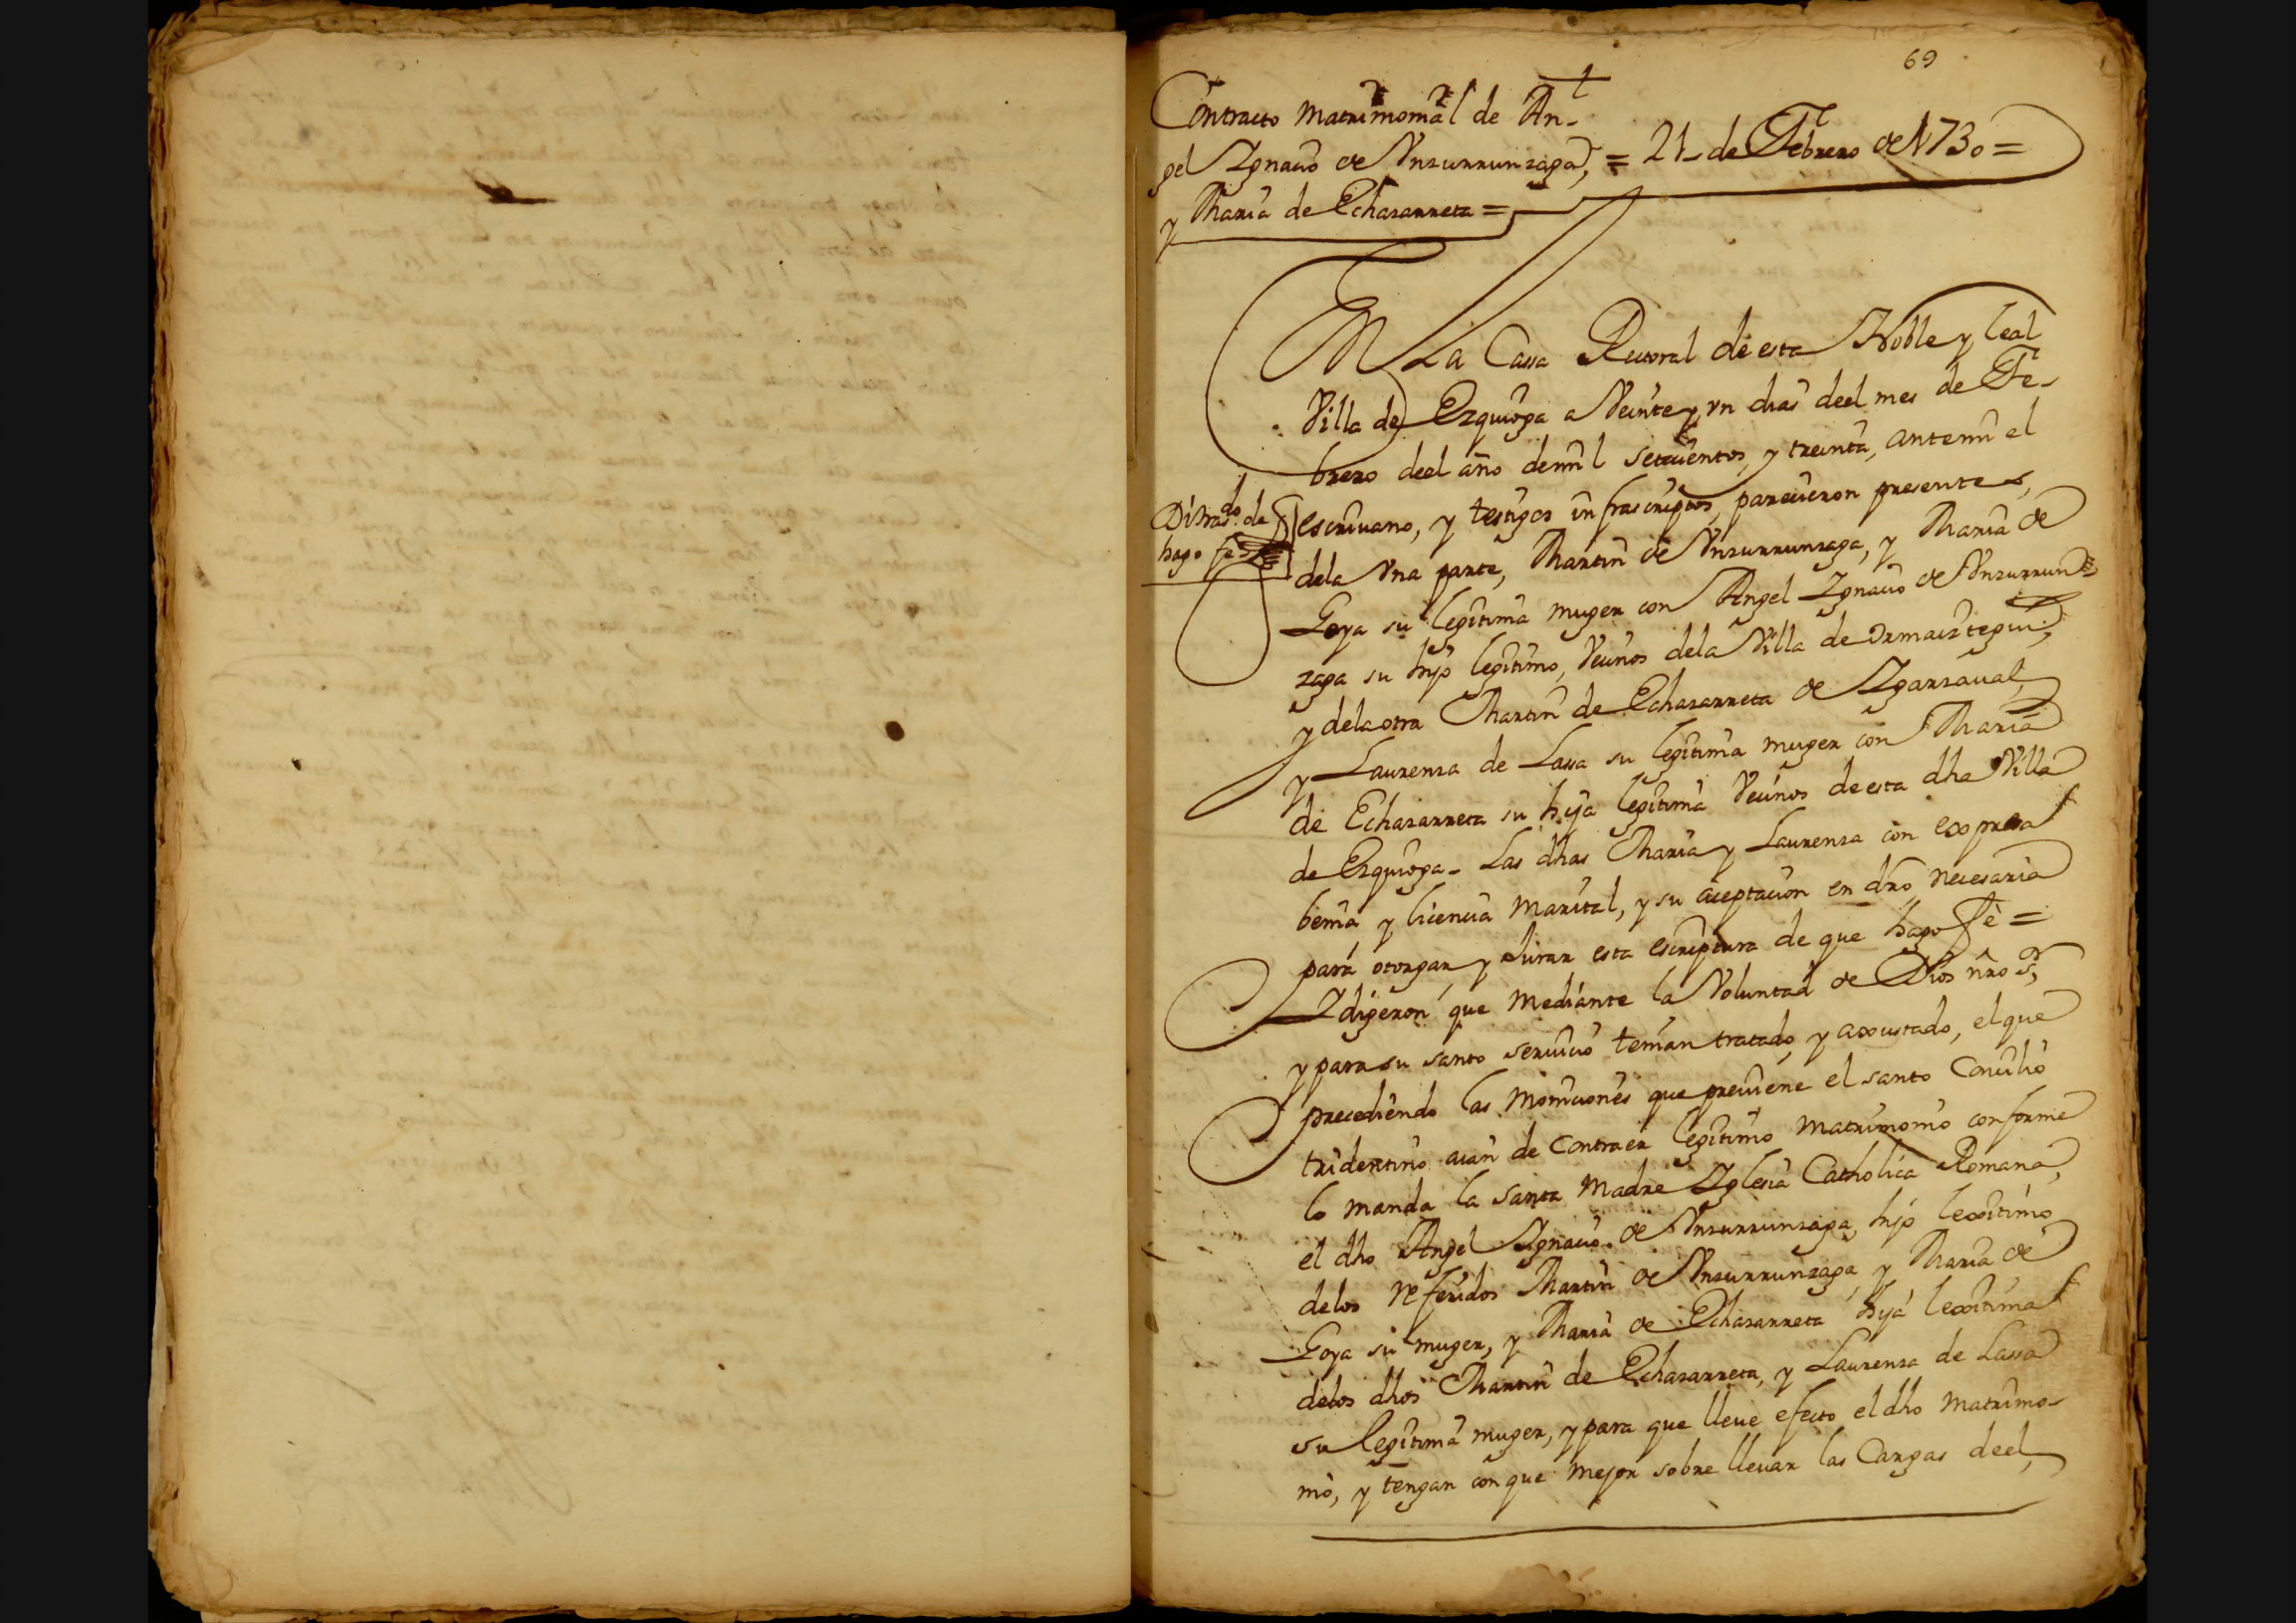 69
Contracto Matrimonial de An-
gel Ygnacio de Vnzurrunzaga, = 21 de Febrero de 1730 =
y Maria de Echazarreta =
En La Cassa Rectoral de esta Noble y Leal
Villa de Ezquioga a Veinte y vn dias deel mes de Fe-
brero deel año de mil setecientos, y treinta, ante mi el
escriuano, y testigos infrascriptos, parecieron presentes,
Di tras.do de
hago fe
dela Vna parte, Martin de Vnzurrunzaga, y Maria de
Goya su legitima muger con Angel Ygnacio de Vnzurrun-
zaga su hijo legitimo, Vecinos dela Villa de Ormaiztegui,
y dela otra Martin de Echazarreta de Ygarzaual,
y Laurenza de Lassa su legitima muger con Maria
de Echazarreta su hija legitima Vecinos de esta dha Villa
de Ezquioga - Las dhas Maria y Laurenza con expresa
benia y licencia Marital, y su aceptacion en dro necesaria
para otorgar, y Jurar esta escriptura de que hago Fè =
Y digeron que Mediante la Voluntad de Dios nro Sr,
y para su santo seruicio tenian tratado, y axustado, el que
precediendo las Moniciones que preuiene el santo Concilio
tridentino aian de Contraer legitimo Matrimonio conforme
lo manda la santa Madre Yglesia Catholica Romana,
el dho Angel Ygnacio de Vnzurrunzaga, hijo lexitimo
delos referidos Martin de Vnzurrunzaga, y Maria de
Goya su muger, y Maria de Echazarreta hija lexitima
delos dhos Martin de Echazarreta, y Laurenza de Lassa
su legitima muger, y para que lleue efecto el dho Matrimo-
nio, y tengan con que mejor sobre lleuar las Cargas deel,